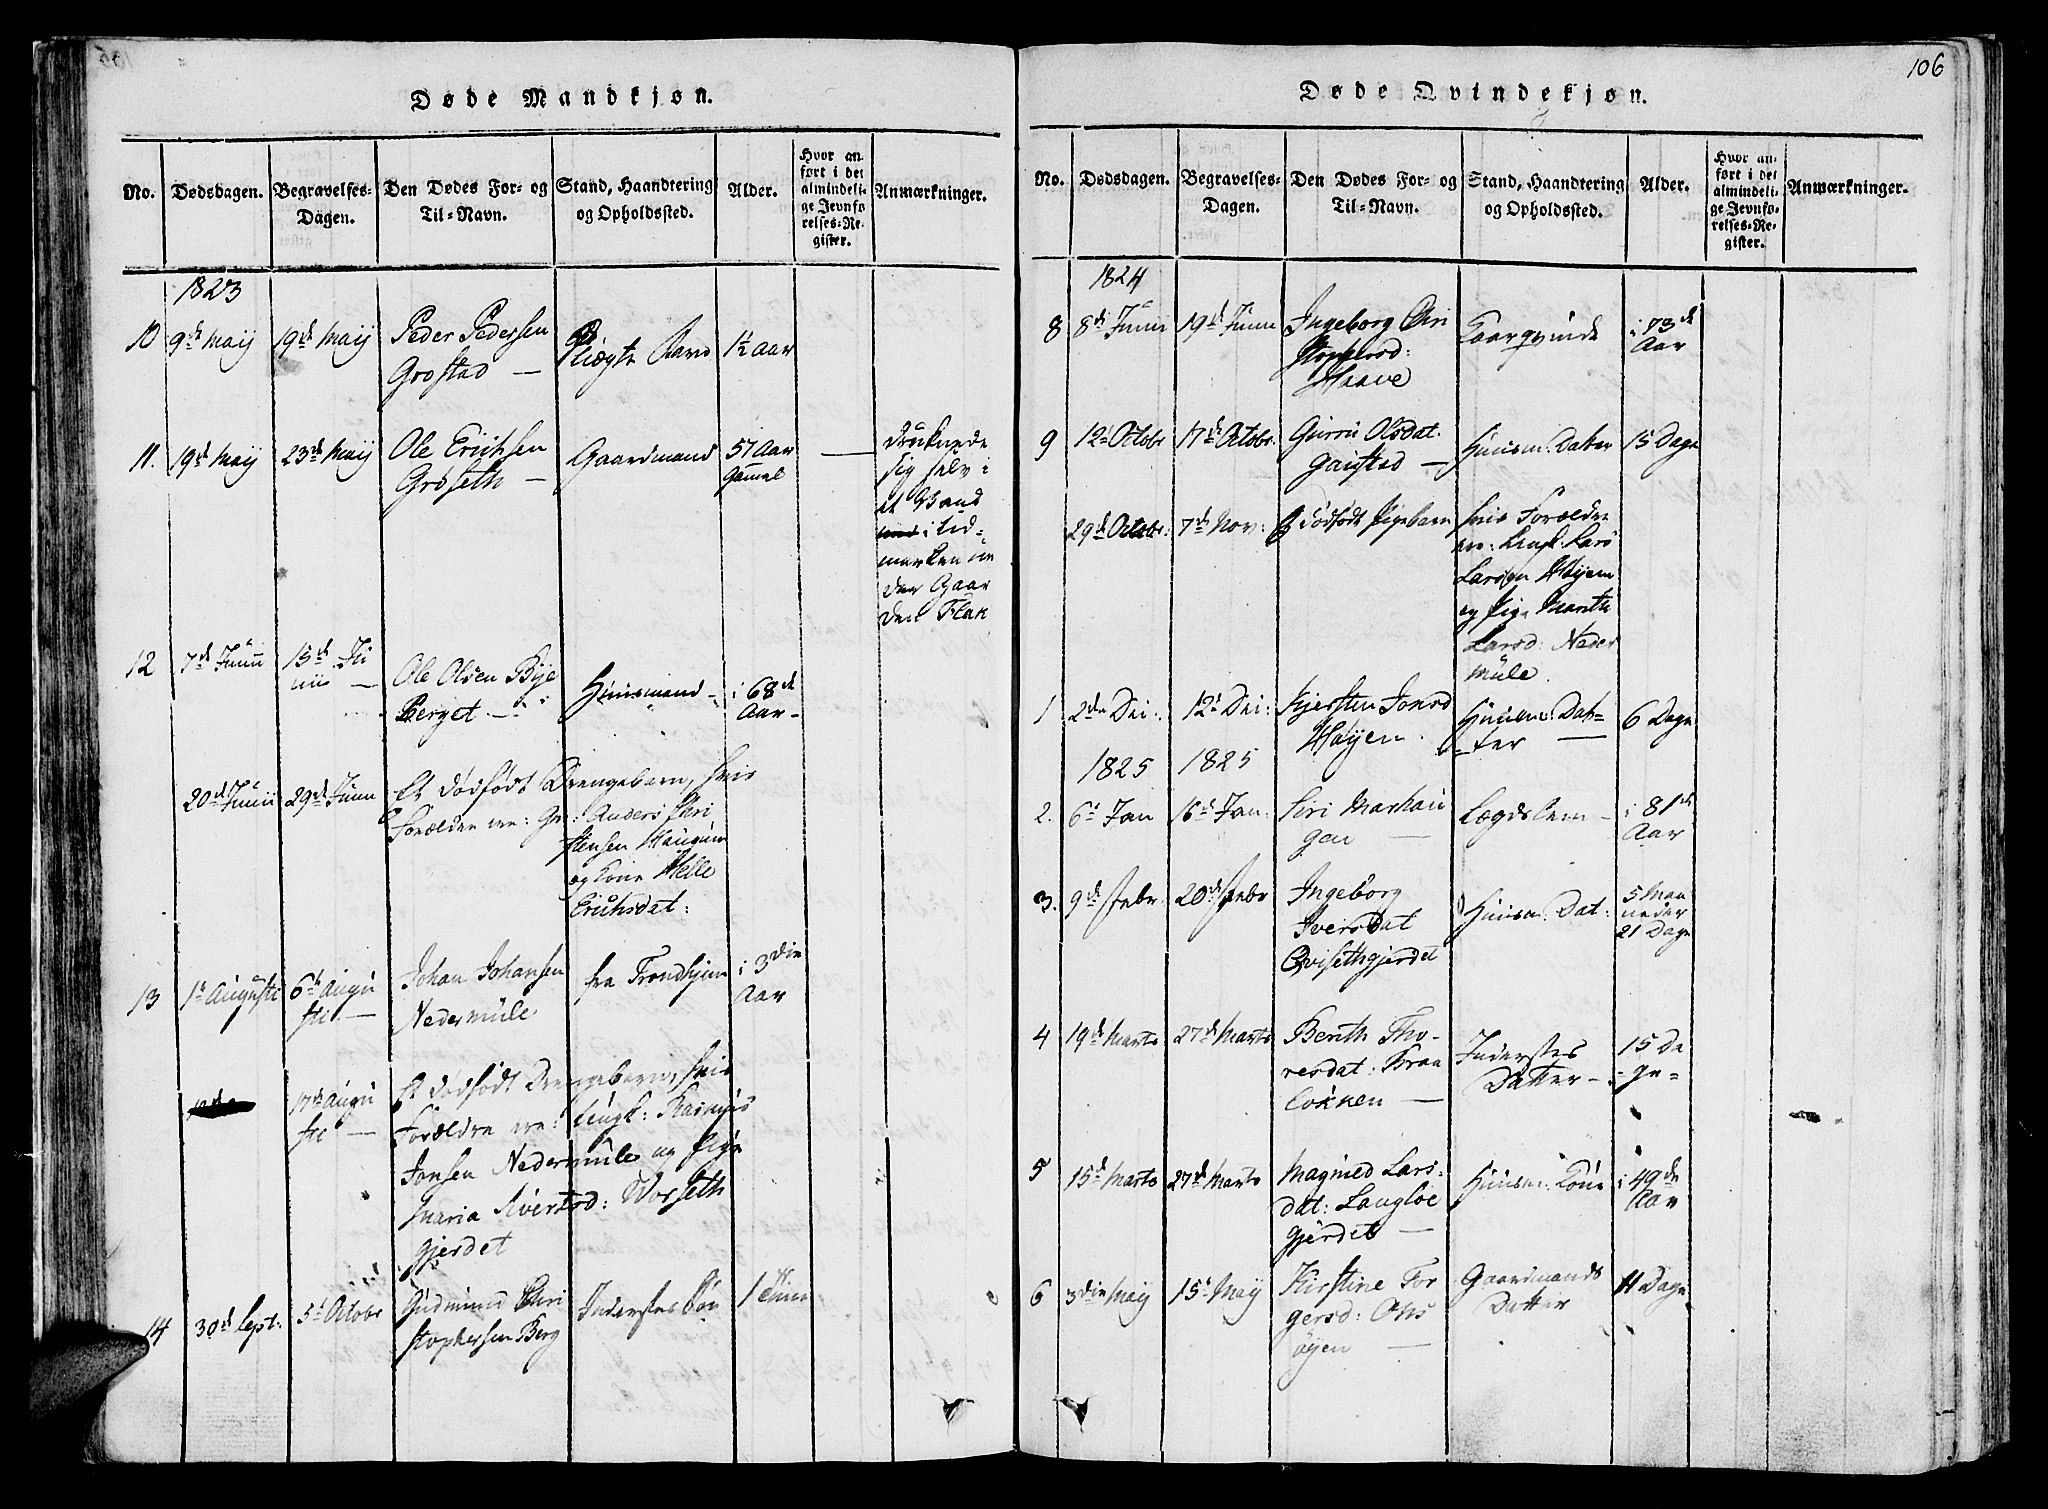 Døde Mandkjøn.
No.
Dødsdagen.
Begravelses-
Dagen.
Den Dødes For- og
Til-Navn.
Stand, Haandtering
og Opholdssted.
Alder.
Hvor an-
ført i det
almindeli-
ge Jevnfø-
relses-Re-
gister.
Anmærkninger.
1823
10 9de Maij 19de Maij Peder Pedersen
Grøstad —
Plægte Barn
1½ Aar
11. 19de Maij 23de Maij Ole Erichsen
Grøseth —
Gaardmand
57 Aar
gammel
druknede
sig selv i
et Vand
i
marken un
der Gaar
den Flak
12 7de Junii 15de Ju
nii —
Ole Olsen Bye
Berget —
Huusmand
i 68de
Aar
20de Junii 29de Junii Et dødfødt Drengebarn, hvis
Forældre ere: Gm: Anders Chri
stensen Haugum
og Kone Helle
Erichsdat:
13 1te Augusti 6te Augu
sti —
Johan Johansen
Nedermule
fra Trondhjem
i 3die
Aar
17de Augu
sti —
Et dødfødt Drengebarn, hvis
Forældre ere: Ungk: Rasmus
Jonsen Nedermule og Pige
Maria Sivertsd: Worseth
gjerdet
14 30de Sept: 5te Octobr Gudmund Chri
stophersen Berg
Inderstes Søn
1 Time
106
Døde Qvindekjøn.
No.
Dødsdagen.
Begravelses-
Dagen.
Den Dødes For- og
Til-Navn.
Stand, Haandtering
og Opholdssted.
Alder.
Hvor an-
ført i det
almindeli-
ge Jevnfø-
relses-Re-
gister.
Anmærkninger.
1824
8 8de Junii 19de Junii Ingeborg Chri
stophersd:
Haave
Kaarqvinde
i 73de
Aar
9 12te Octobr 17de Octobr. Gurru Olsdat.
Gaustad —
Huusm: Datter 15 Dage
29de Octobr: 7de Nov: Et dødfødt Pigebarn
hvis Forældre
ere: Ungk: Lars
Larsen Høyem
og Pige Marith
Larsd: Neder
mule.
1 2den Dec: 12te Dec: Kjersten Jonsd
Høyen.
Huusm: Dat-
ter —
6 Dage
1825 1825
2. 6te Jan 16de Jan: Siri Marhau
gen —
Lægdslem —
i 81de
Aar
3. 9de Febr 20de Febr Ingeborg
Iversdat
Qvisethgjerdet
Huusm: Dat:
5 Maa
neder
21 Dage
4 19de Marts 27de Marts Berith Tho-
resdat: Kraa
løkken —
Inderstes
Datter —
15 Da-
ge —
5 15de Marts 27de Marts Magnild Lars-
dat: Langloe
gjerdet —
Huusm: Kone
i 49de
Aar
6 3die Maij 15de Maij Kirstine Tor
gersd: Ons
øyen —
Gaardmands
Datter
11 Dage